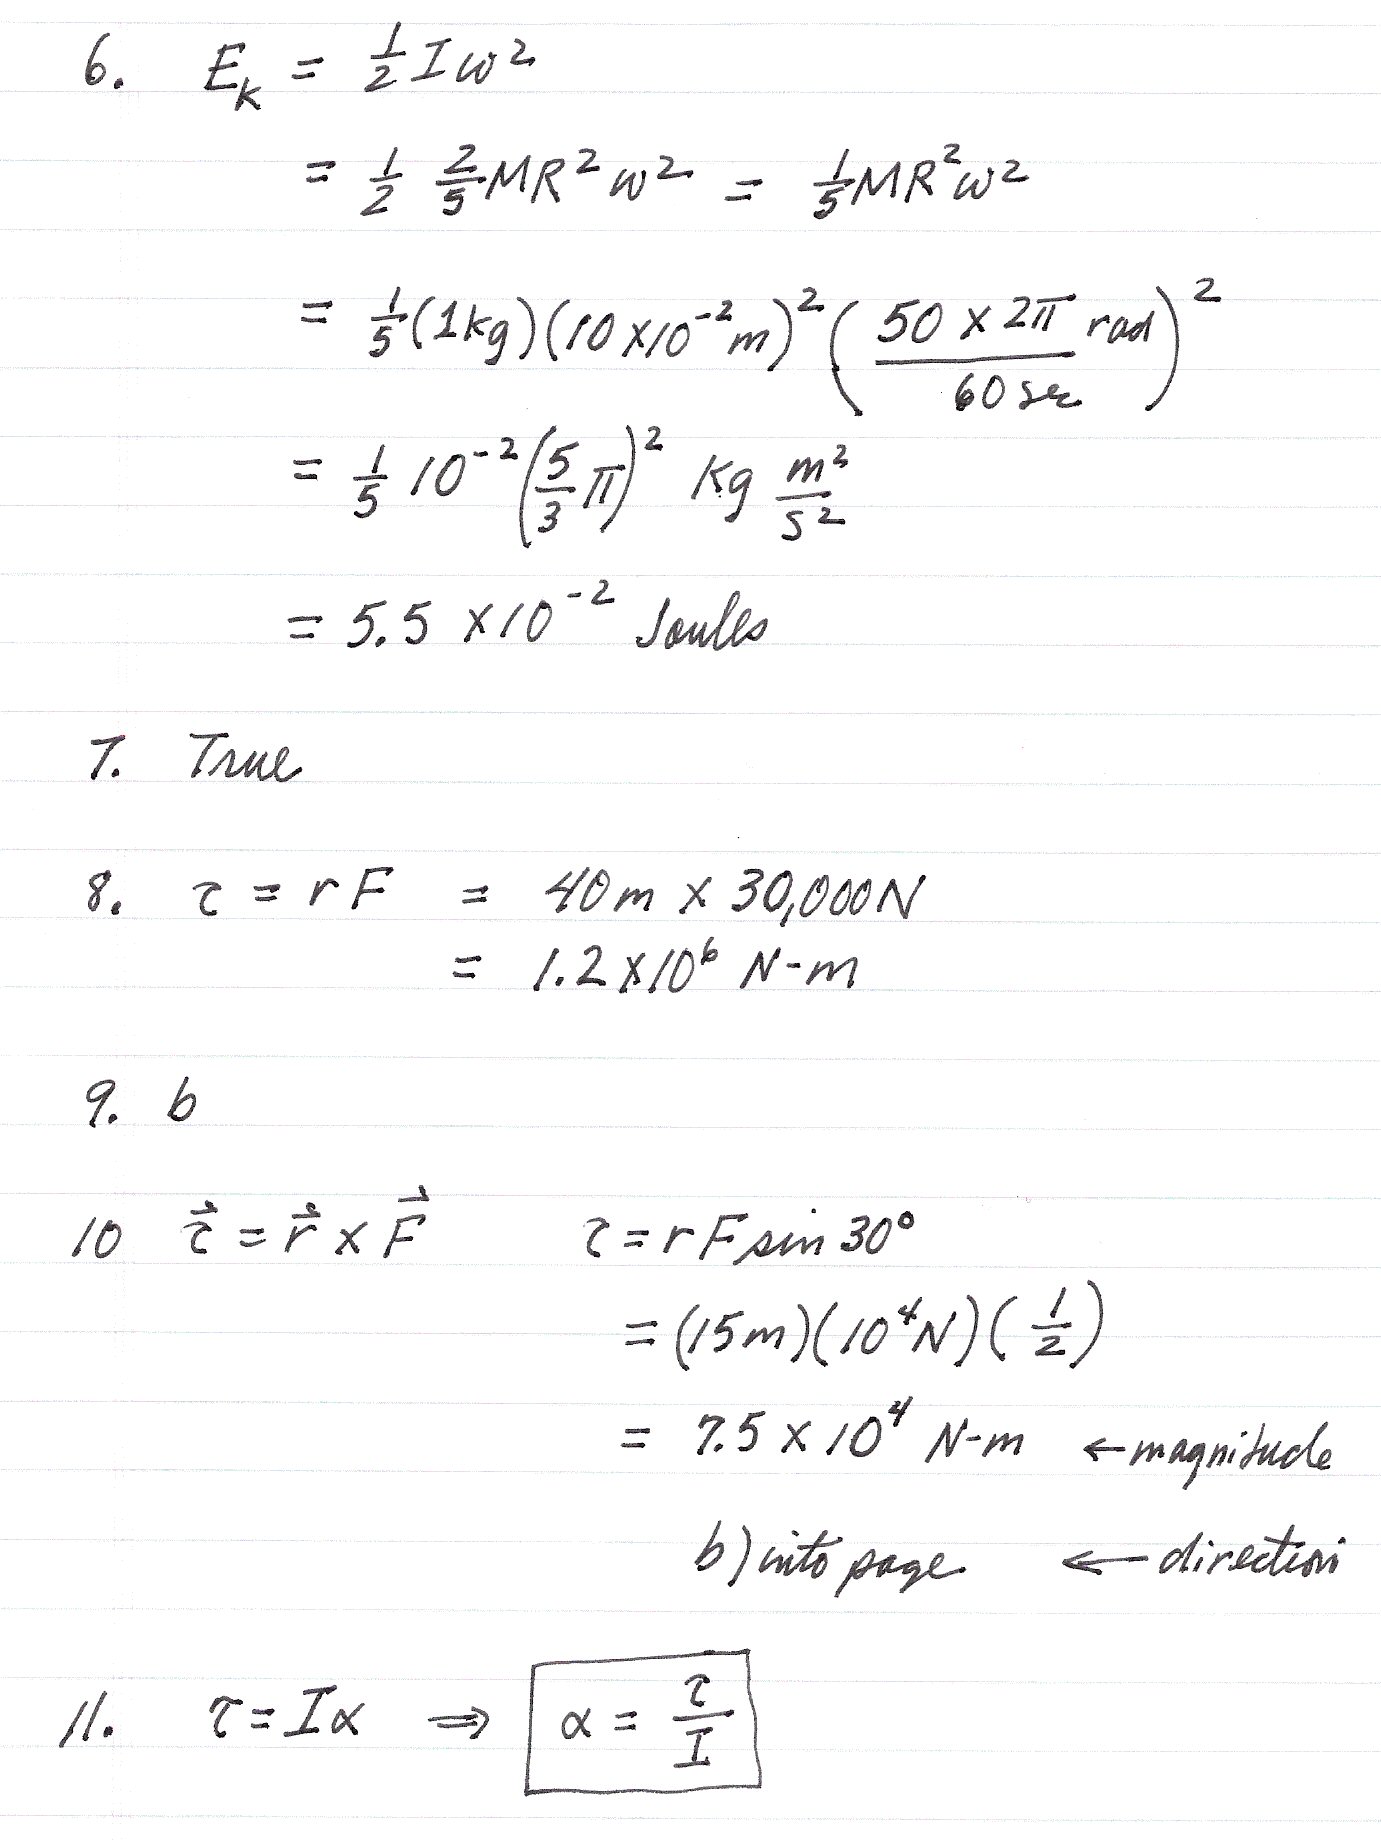 6. E_k = 1/2 I ω²
= 1/2 2/5 MR² ω² = 1/5 MR² ω²
= 1/5 (1kg)(10×10⁻²m)² (50 × 2π rad / 60 sec)²
= 1/5 10⁻² (5/3 π)² kg m²/s²
= 5.5 ×10⁻² Joules
7. True
8. τ = rF = 40m × 30,000N
= 1.2×10⁶ N-m
9. b
10 τ⃗ = r⃗ × F⃗ τ = rF sin 30°
= (15m)(10⁴N)(1/2)
= 7.5 × 10⁴ N-m ← magnitude
b) into page ← direction
11. τ = Iα ⇒ α = τ/I